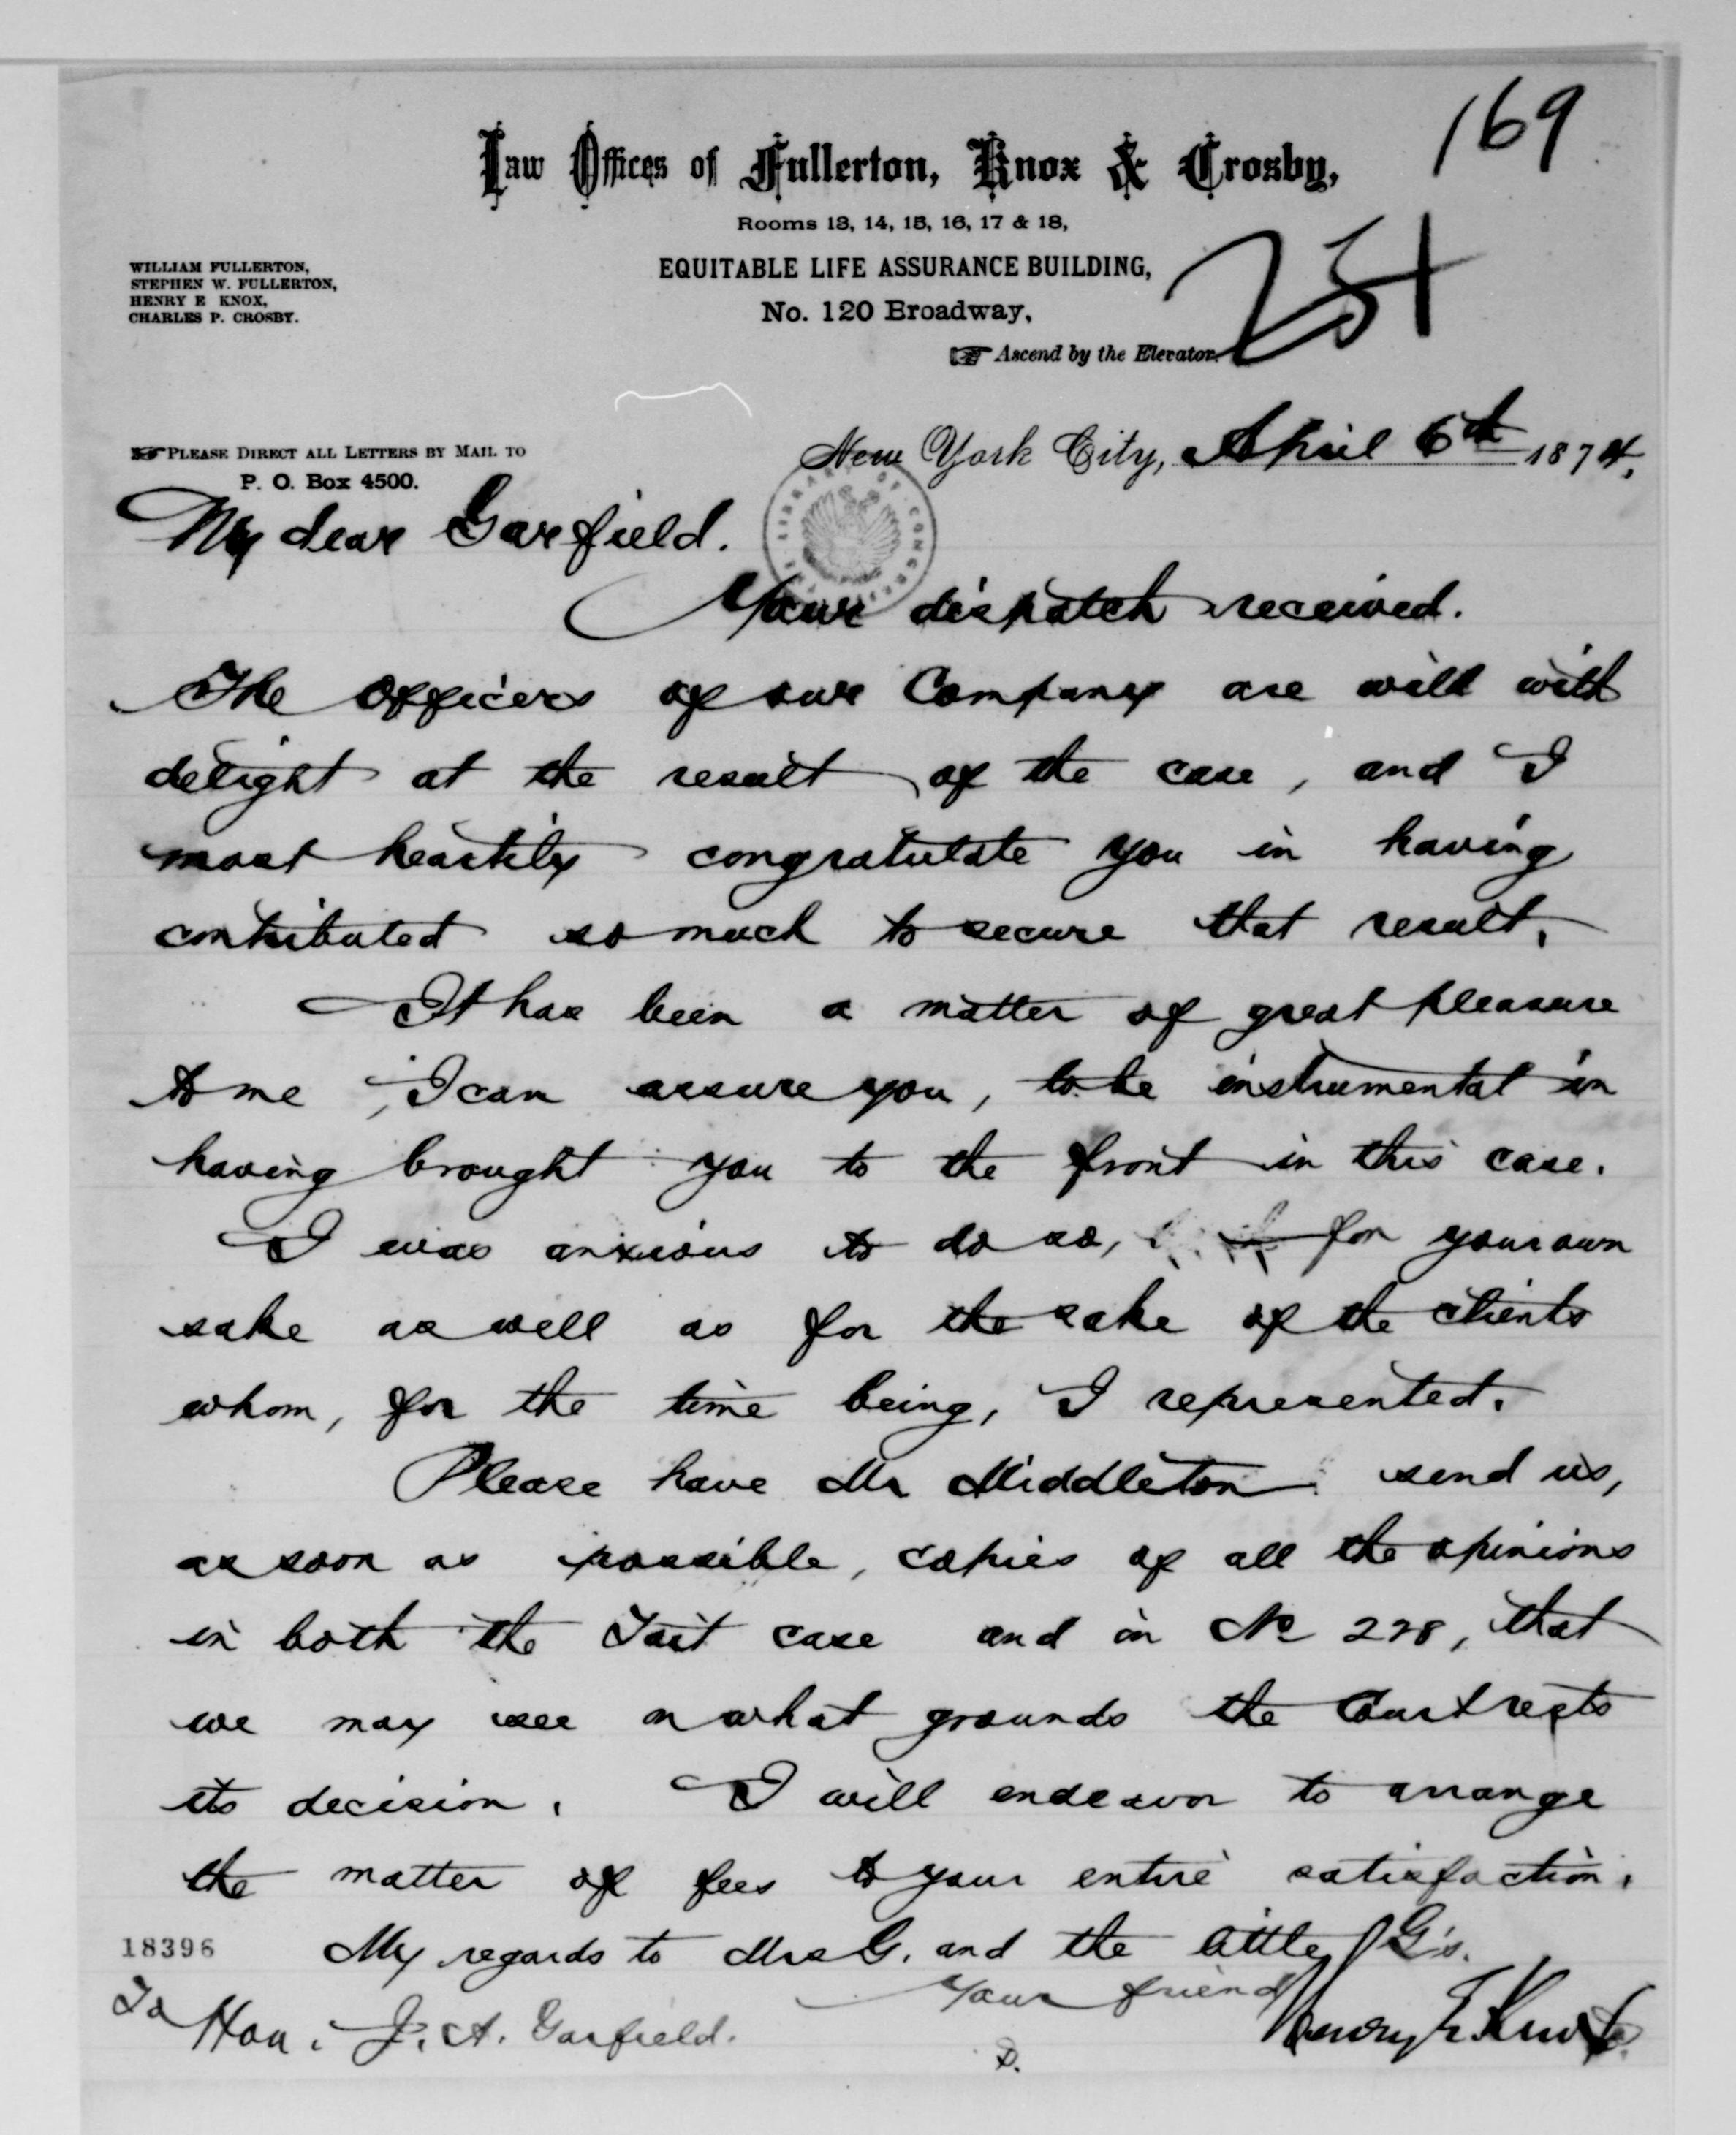 169
Law Offices of Fullerton, Knox & Crosby,
Rooms 13, 14, 15, 16, 17 & 18,
EQUITABLE LIFE ASSURANCE BUILDING,
No. 120 Broadway,
☞ Ascend by the Elevator.
WILLIAM FULLERTON,
STEPHEN W. FULLERTON,
HENRY E KNOX,
CHARLES P. CROSBY.
☞ PLEASE DIRECT ALL LETTERS BY MAIL TO
P. O. Box 4500.
New York City, April 6th 1874.
My dear Garfield.
Your dispatch received.
The Officers of our Company are wild with
delight at the result of the case, and I
most heartily congratulate you in having
contributed so much to secure that result.
It has been a matter of great pleasure
to me, I can assure you, to be instrumental in
having brought you to the front in this case.
I was anxious to do so, for your own
sake as well as for the sake of the clients
whom, for the time being, I represented.
Please have Mr Middleton send us,
as soon as possible, copies of all the opinions
in both the Tait case and in No 228, that
we may see on what grounds the Court rests
its decision. I will endeavor to arrange
the matter of fees to your entire satisfaction.
My regards to Mrs G. and the little G's.
Your friend
Henry E Knox
18396
To Hon. J. A. Garfield.